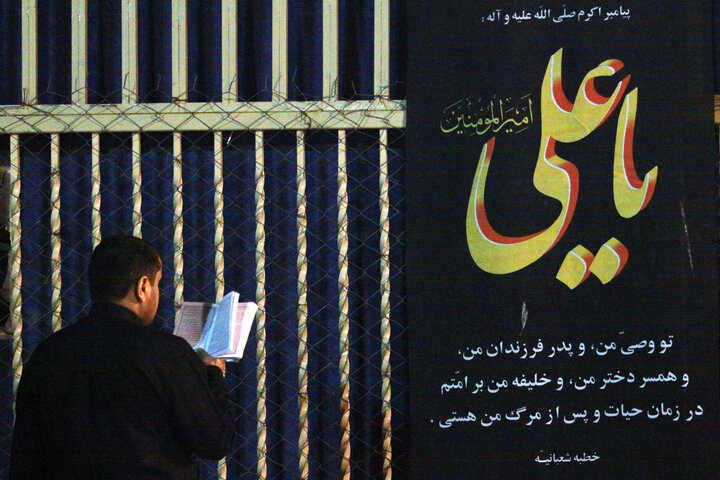 پیامبر اکرم صلّی اللّه علیه و آله :
یا علی
امیرالمؤمنین
تو وصیّ من، و پدر فرزندان من،
و همسر دختر من، و خلیفه من بر امّتم
در زمان حیات و پس از مرگ من هستی .
خطبه شعبانیـّه